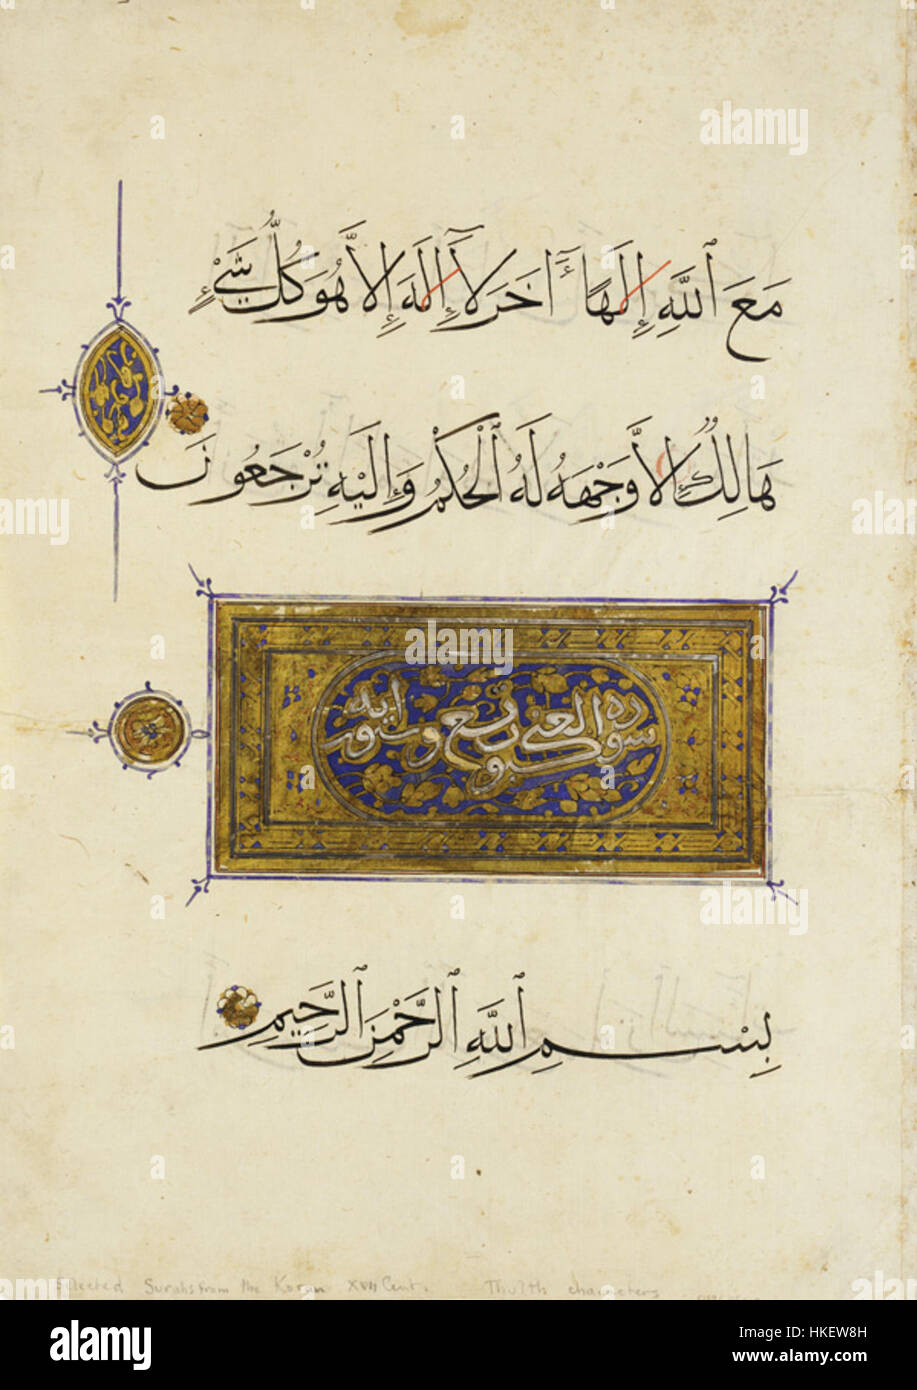 مَعَ ٱللَّهِ إِلَهًا ءَاخَرَ لَآ إِلَهَ إِلَّا هُوَ كُلُّ شَيْءٍ
هَالِكٌ إِلَّا وَجْهَهُ لَهُ ٱلْحُكْمُ وَإِلَيْهِ تُرْجَعُونَ
سورة العنكبوت تسع وستون اية
بِسْمِ ٱللَّهِ ٱلرَّحْمَنِ ٱلرَّحِيمِ
Selected Surahs from the Koran XVII Cent. Thulth characters
alamy
Image ID: HKEW8H
www.alamy.com